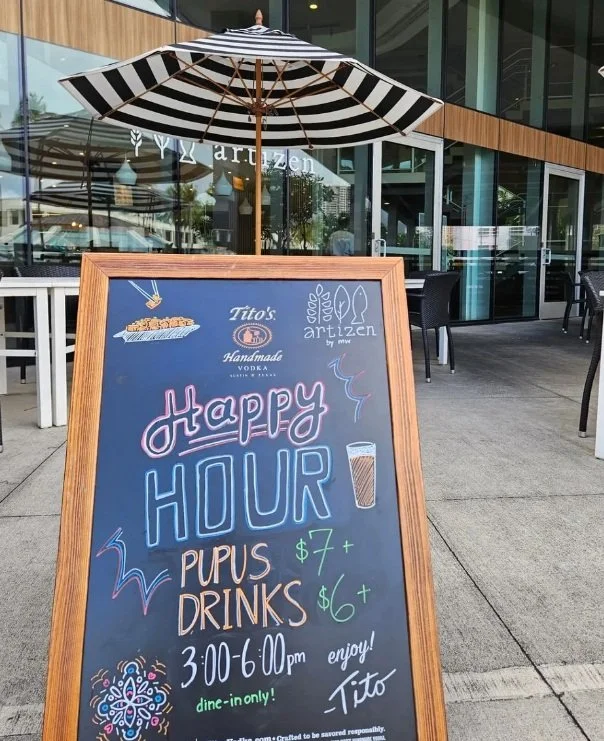 artizen
Tito's
Handmade
VODKA
AUSTIN ★ TEXAS
artizen
by mw
Happy
HOUR
PUPUS $7+
DRINKS $6+
3:00-6:00pm
dine-in only!
enjoy!
-Tito
Crafted to be savored responsibly.